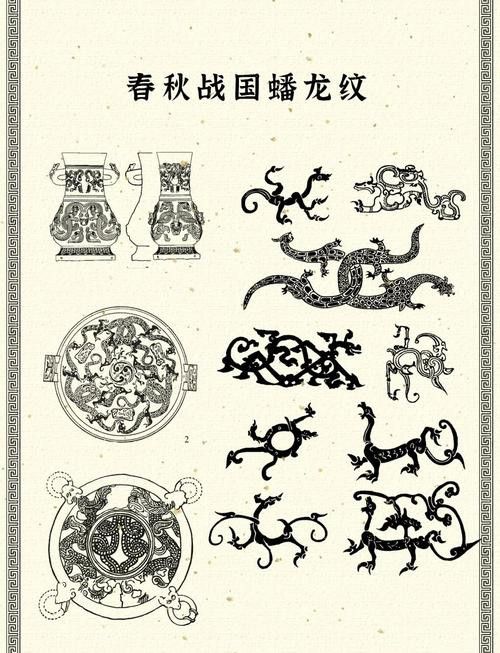 春秋战国蟠龙纹
2